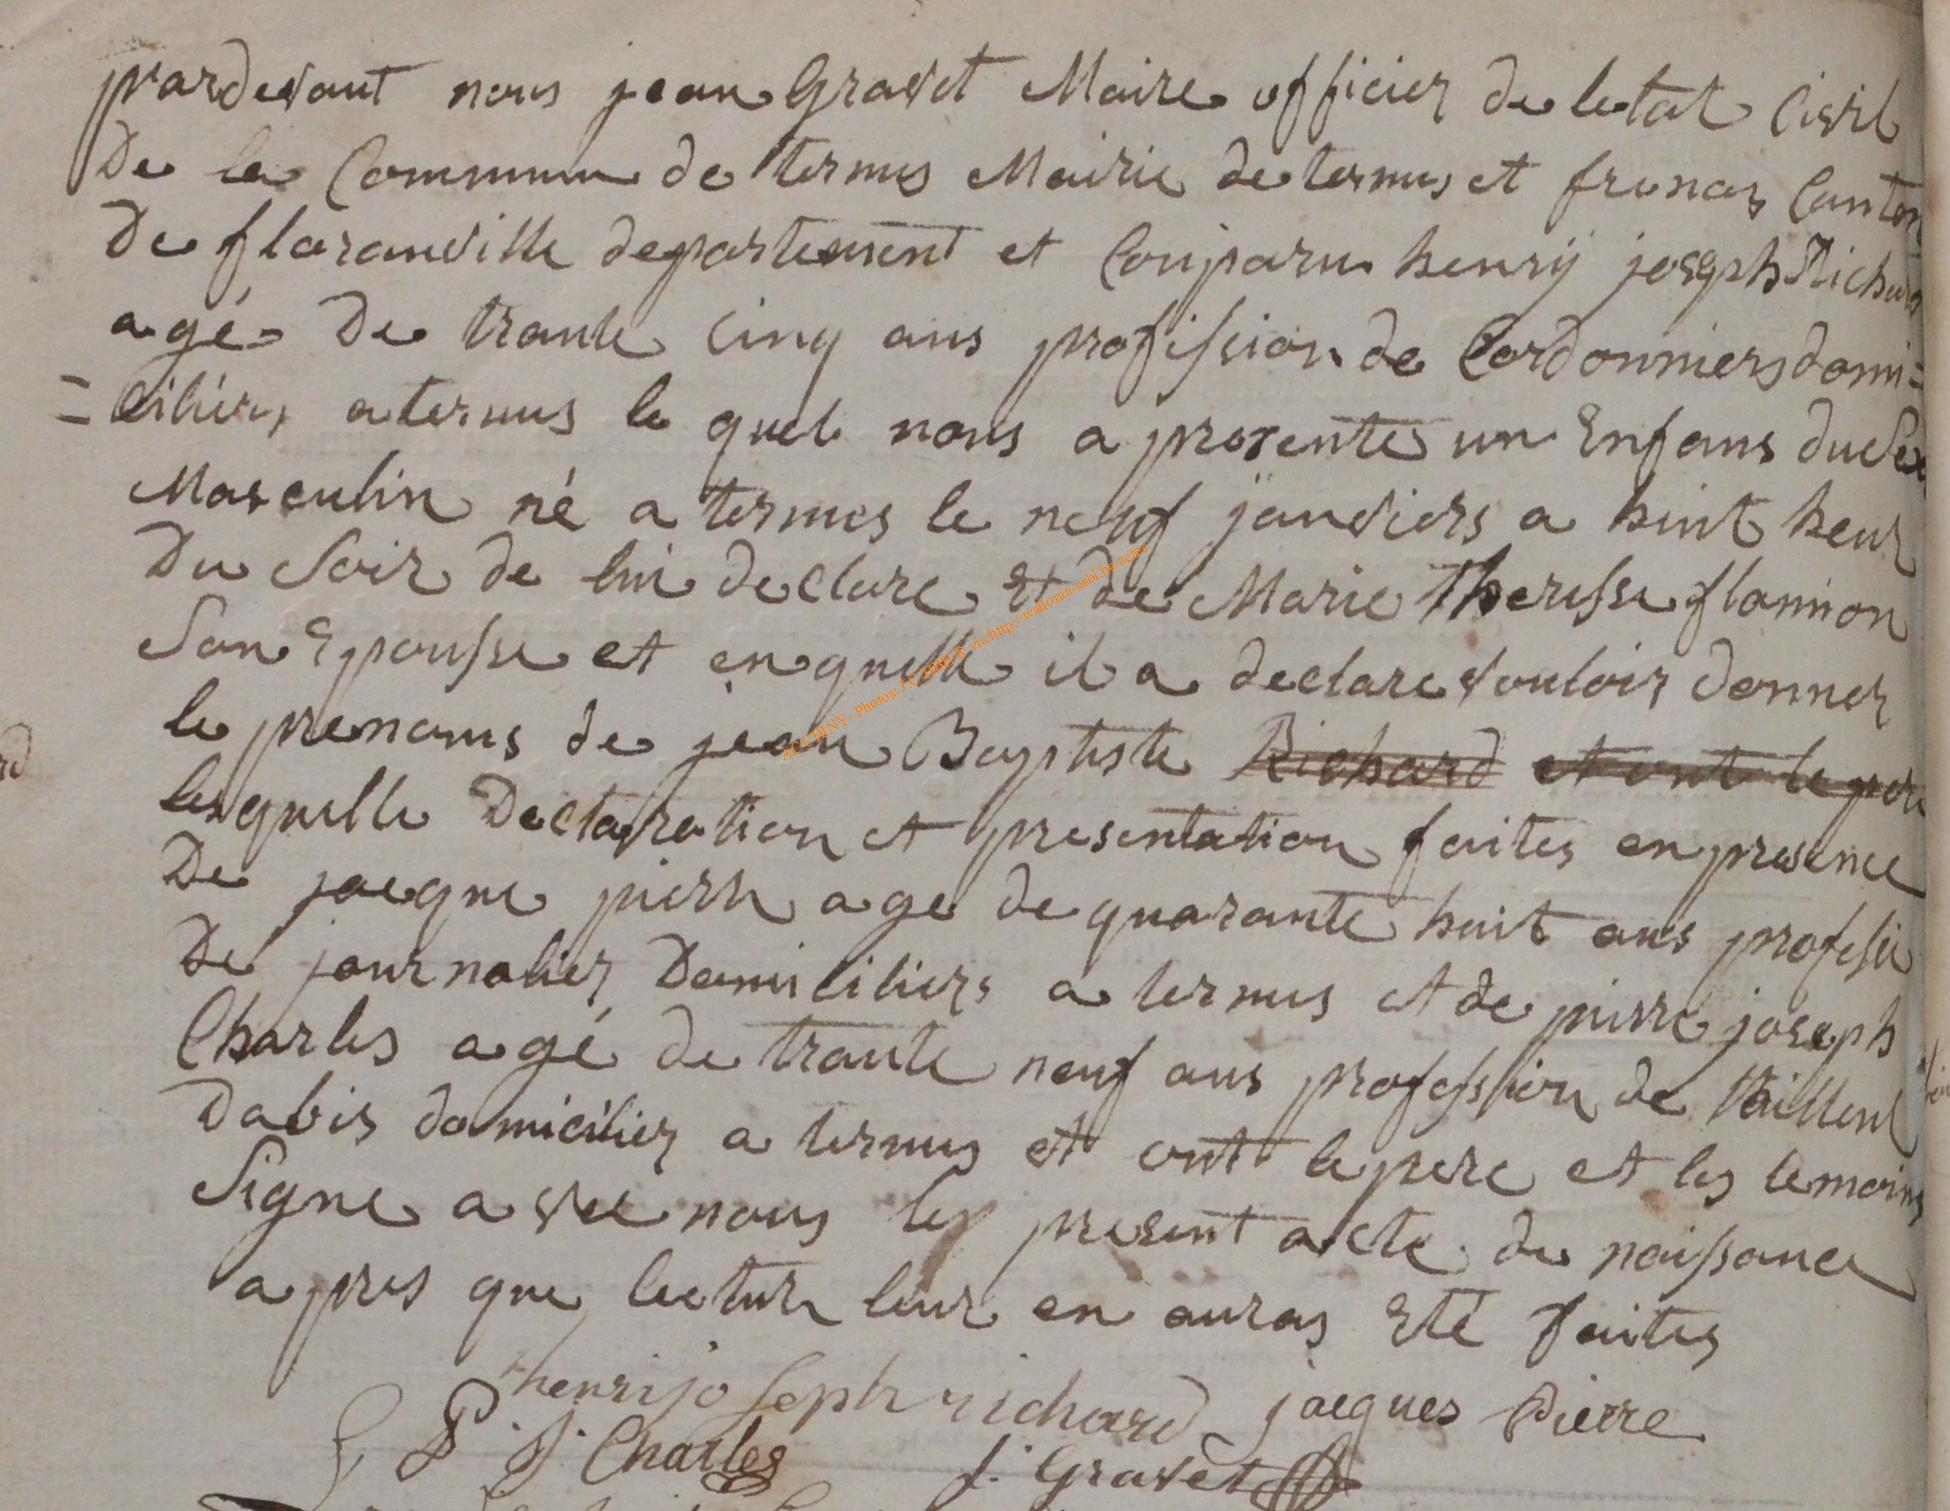 pardevant nous jean Gravet Maire officier de letat Civil
De la Commune de termes Mairie de termes et frenois Canton
De floranville departement et Conparu henrÿ joseph Richard
agé De trante Cinq ans profission de Cordonniers domi=
=ciliers a termes le quel nous a presente un Enfans du Sex
Masculin né a termes le neuf janviers a huit heur
Du Soir de lui declare Et de Marie theresse flamion
Son Epousse et enquelle il a declare vouloir donner
le prenoms de jean Baptiste Richard et ont le pere
lesquelle Declaration et presentation faites en presence
De jacque pierre age de quarante huit ans professi
De journalier Domiciliers a termes et de pierre joseph
Charles agé de trante neuf ans profession de tailleul
Dabis domicilier a termes et ont le pere et les temoins
Signe avec nous les present acte de naissance
apres que lecture leur en auras Eté faites
henri joseph richard jacques Pierre
P. J. Charles J. Gravet
ACCHINY - Photos via http://wallonia-asbl.be/actes